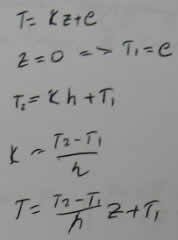 T = Kz+C
z = 0 => T₁ = C
T₂ = Kh + T₁
K = \frac{T₂-T₁}{h}
T = \frac{T₂-T₁}{h} z + T₁